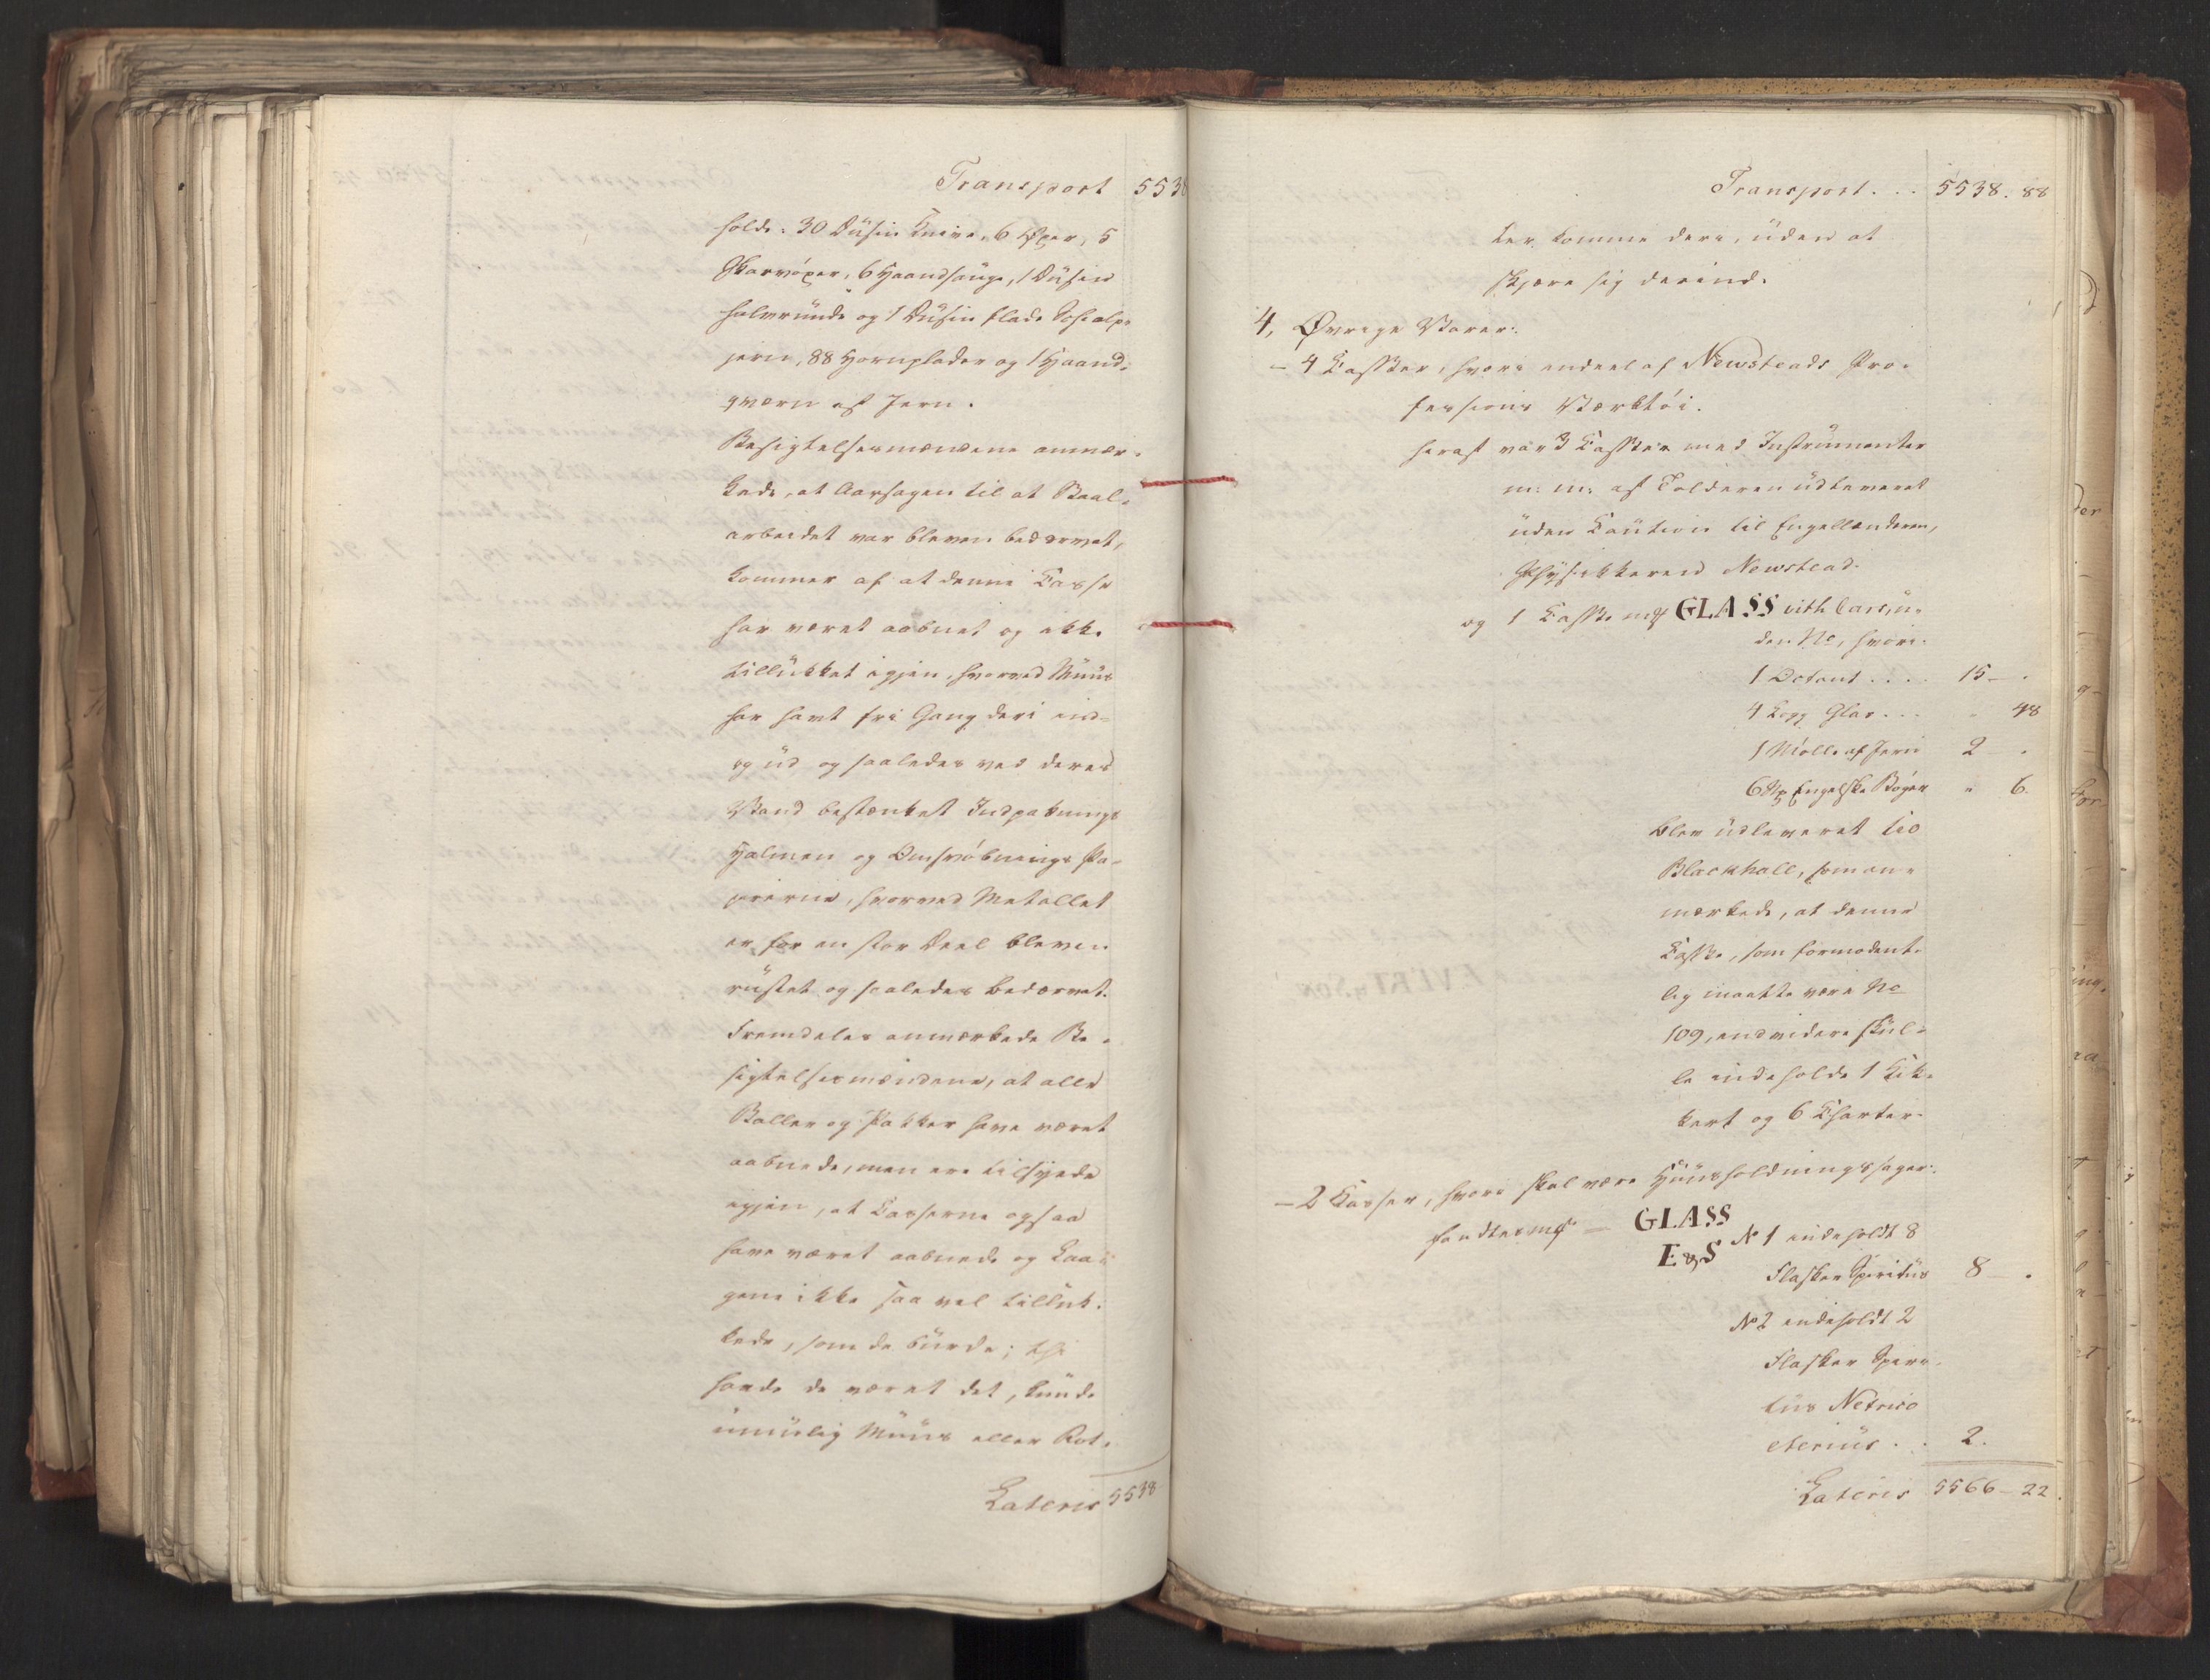 Transport 553
holdt. 30 Dusin Knive, 6 Øxer, 5
Skarvøxer, 6 Haandsauge, 1 Dusin
halvrunde og 1 Dusin flade
jern, 88 Hornplader og 1 Haand-
qværn af Jern.
Besigtelsesmændene anmær-
kede, at Aarsagen til at Staal-
arbeidet var bleven bedærvet,
kommer af at denne Casse
har været aabnet og ikke
tillukket igjen, hvorved Muus
har havt fri Gang deri ind
og ud og saaledes ved deres
Vand bestænket Indpaknings
Halmen og Omsvøbnings Pa-
pirerne, hvorved Metallet
er for en stor Deel bleven
rustet og saaledes bedærvet.
Fremdeles anmærkede Be-
sigtelsesmændene, at alle
Baller og Pakker have været
aabnede, men ere tilsyede
igjen, at Casserne ogsaa
have været aabnede og Laa-
gene ikke saa vel tilluk-
kede, som de burde; thi
havde de været det, kunde
umulig Muus eller Rot-
Lateris 5538
Transport... 5538. 88
ter komme deri, uden at
skjære sig derind.
4, Øvrige Varer:
- 4 Kassker, hvori endeel af Newsteads Pro-
fessions Værktøi.
heraf var 3 Kassker med Instrumenter
m: m: af Tolderen udleveret
uden Caution til Engellænderen,
Physikkeren Newstead.
og 1 Kasske mkt GLASS with Care, u-
den No, hvori.
1 Octant.... 15 - .
4 Logg Glas... " 48
1 Mølle af Jern 2 - .
6 Engelske Bøger " 6.
blev udleveret til
Blackhall, som an-
mærkede, at denne
Kasske, som formodent-
lig maatte være No
109, endvidere skul-
le indeholde 1 Kik-
kert og 6 Charter.
- 2 Kasser, hvori skal være Huusholdningssager:
fandtes mkt - GLASS
E&S No 1 indeholdt 8
Flasker Spiritus 8 - .
No 2 indeholdt 2
Flasker Spiri-
tus Netrico
eterius.. 2.
Lateris 5566 - 22.